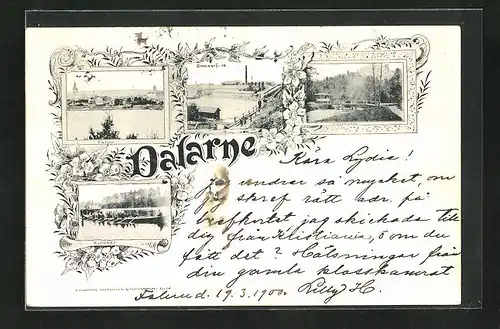 Falun
Dalarne
Kära Lydia!
Jag undrar så mycket, om
jag skref rätt adr. på
brefkortet jag skickade till
dig från Kristiania, o om du
fått det? Hälsningar från
din gamla klasskamrat
Falun d. 19.3.1900. Lilly H.